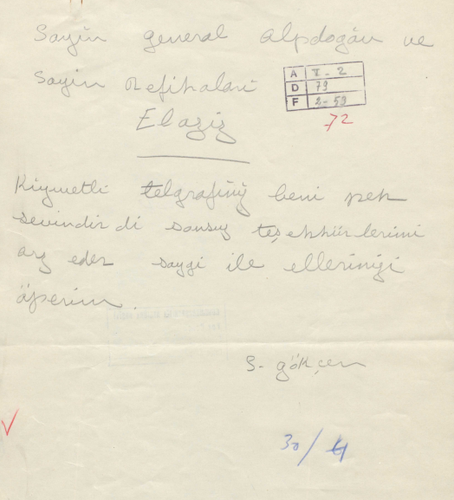 Sayin general alpdogan ve
Sayin Refikalari
Elaziz
A I-2
D 79
F 2-59
72
Kiymetli telgrafiniz beni pek
sevindirdi sonsuz teşekkürlerimi
arz eder saygi ile ellerinizi
öperim.
S. gökçen
30/4